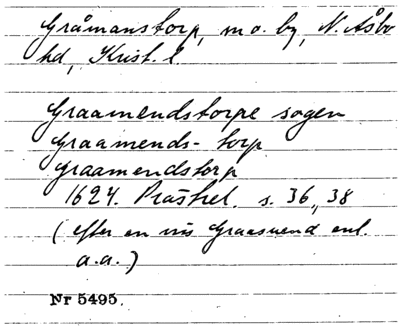 Gråmanstorp, m o. by, N. Åsbo
hd, Krist. l
Graamendstorpe sogen
Graamends-torp
graamendstorp
1624. Prästrel. s. 36, 38
(efter en vis Graamend enl.
a.a.)
Nr 5495.